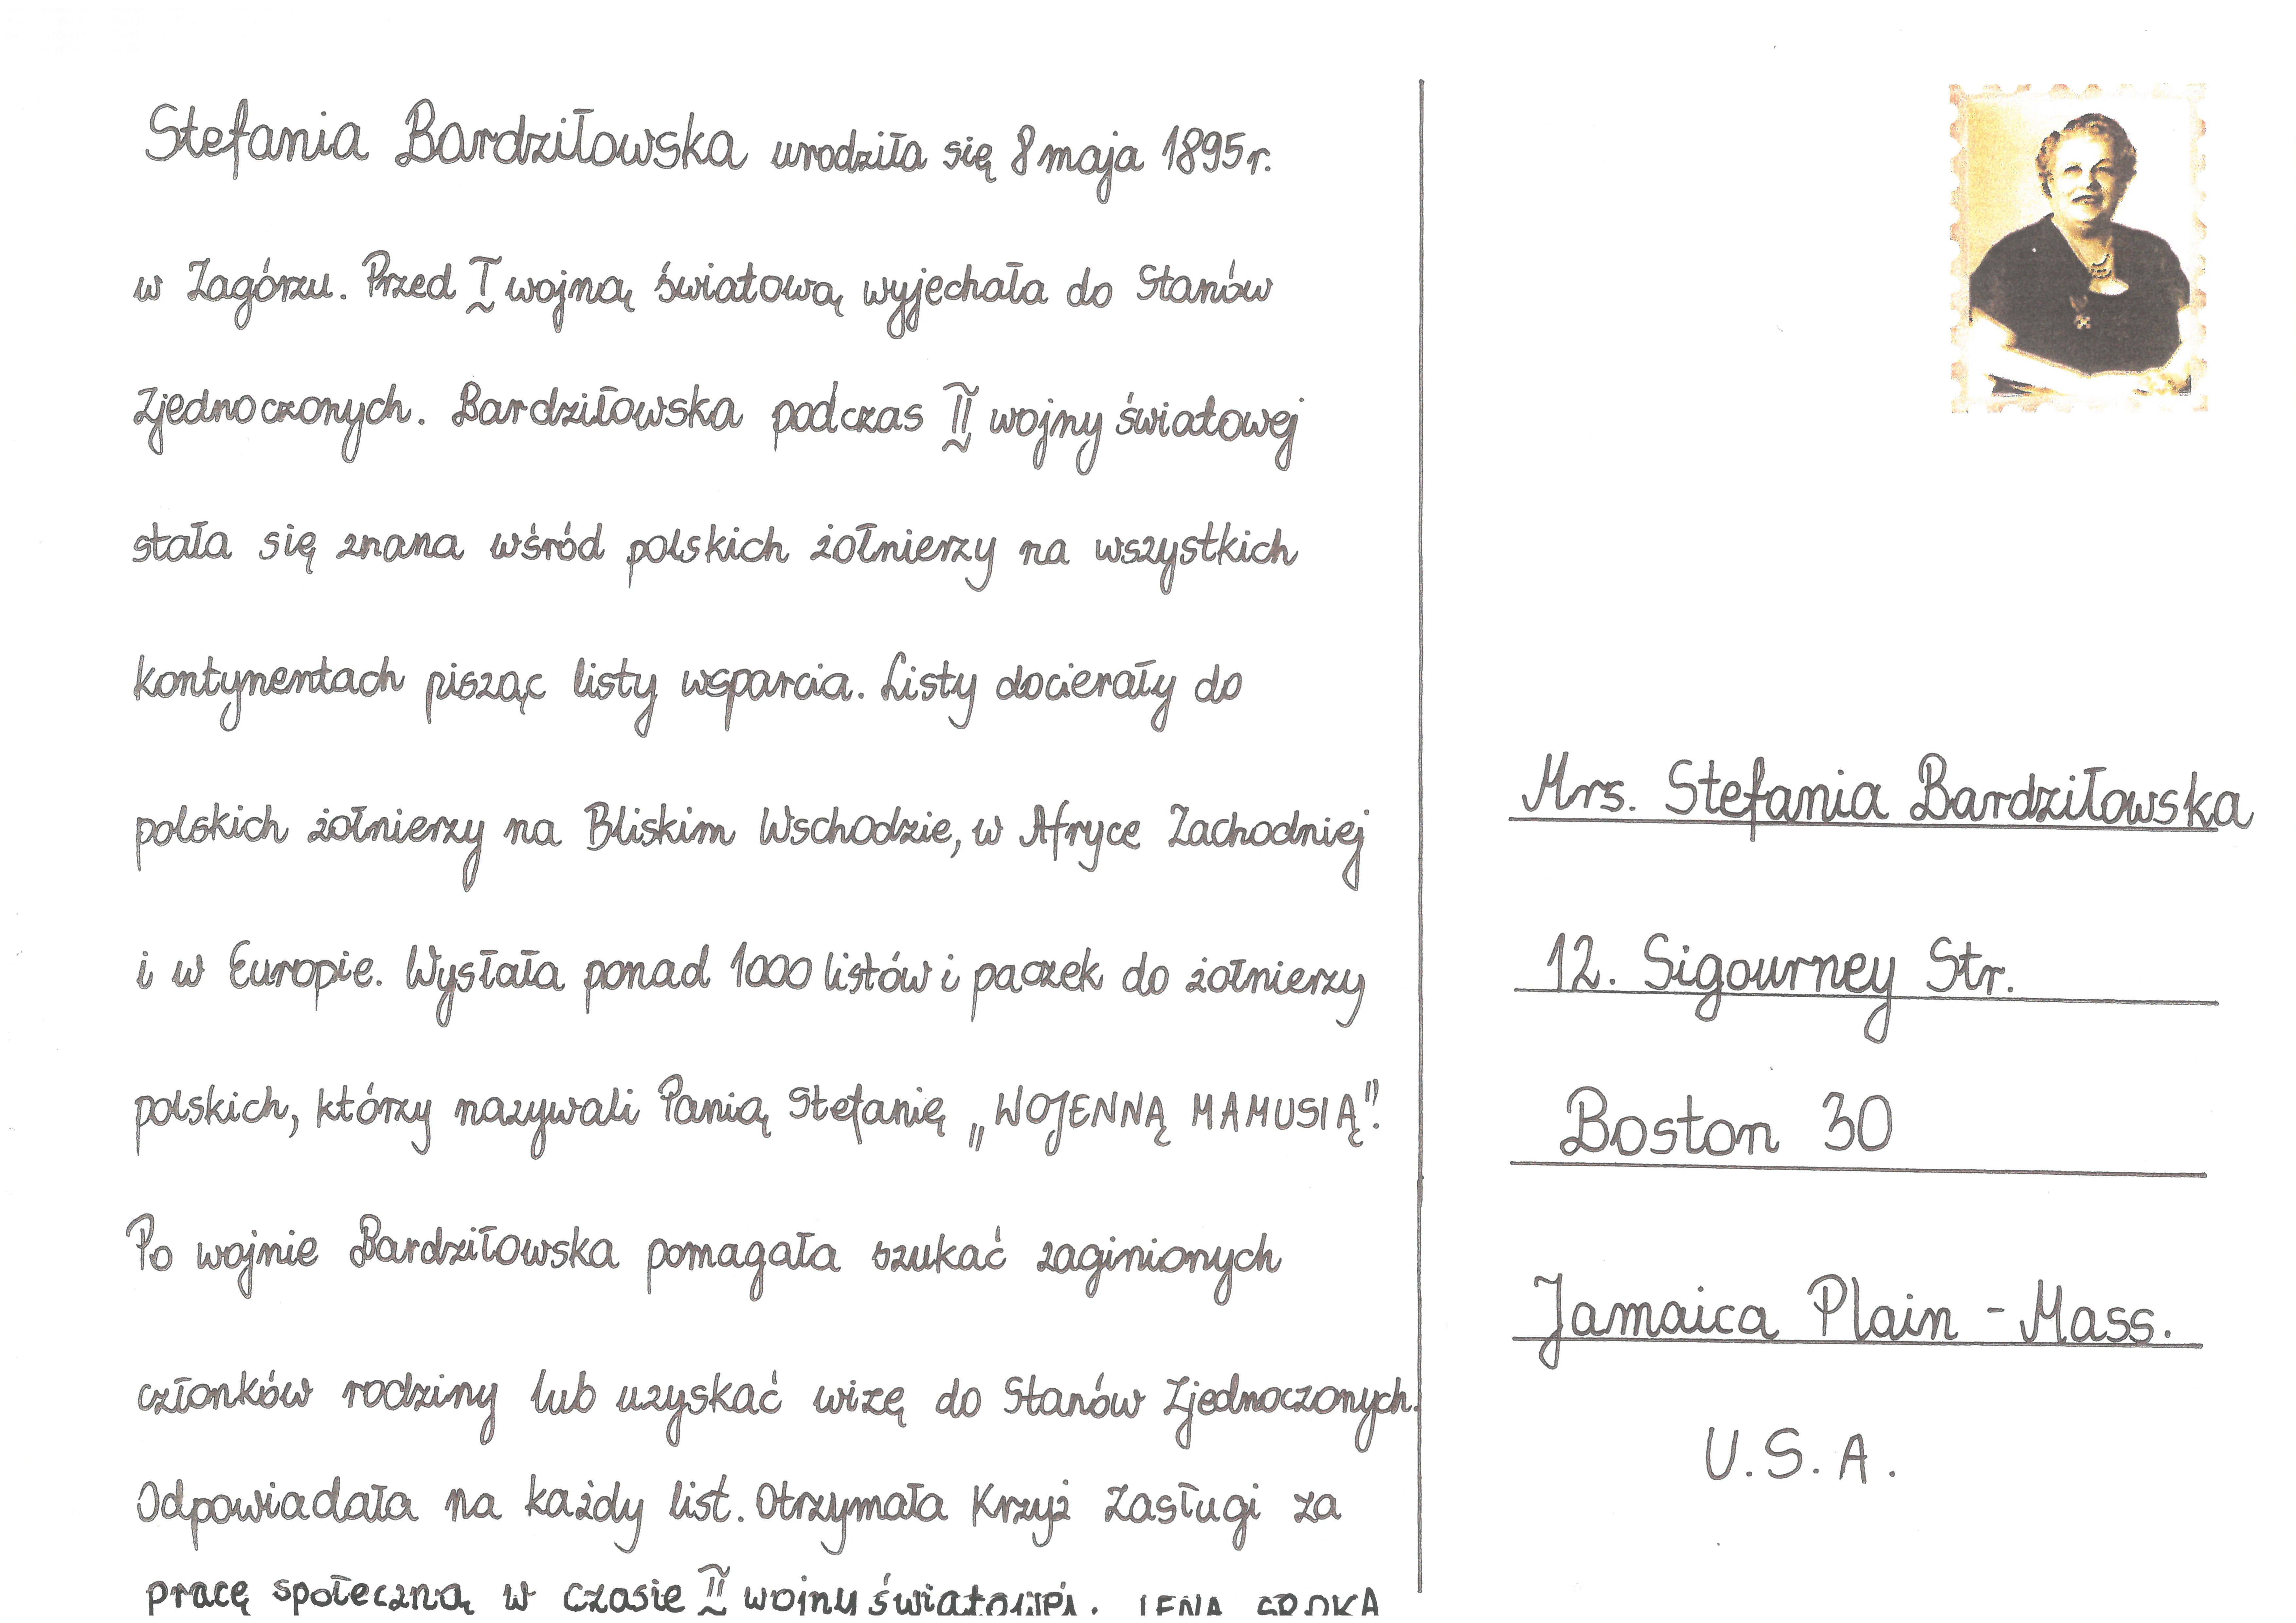 Stefania Bardziłowska urodziła się 8 maja 1895 r.
w Zagórzu. Przed I wojną światową wyjechała do Stanów
Zjednoczonych. Bardziłowska podczas II wojny światowej
stała się znana wśród polskich żołnierzy na wszystkich
kontynentach pisząc listy wsparcia. Listy docierały do
polskich żołnierzy na Bliskim Wschodzie, w Afryce Zachodniej
i w Europie. Wysłała ponad 1000 listów i paczek do żołnierzy
polskich, którzy nazywali Panią Stefanię „WOJENNĄ MAMUSIĄ".
Po wojnie Bardziłowska pomagała szukać zaginionych
członków rodziny lub uzyskać wizę do Stanów Zjednoczonych.
Odpowiadała na każdy list. Otrzymała Krzyż Zasługi za
pracę społeczną w czasie II wojny światowej. LENA SROKA
Mrs. Stefania Bardziłowska
12. Sigourney Str.
Boston 30
Jamaica Plain - Mass.
U.S.A.